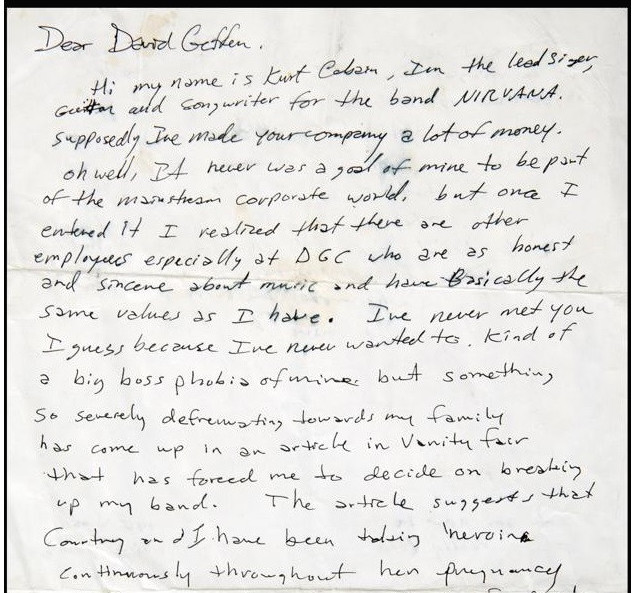 Dear David Geffen.
Hi my name is Kurt Cobain, Im the lead Singer,
Guitar and songwriter for the band NIRVANA.
supposedly Ive made your company a lot of money.
oh well, It never was a goal of mine to be part
of the mainstream corporate world. but once I
entered it I realized that there are other
employees especially at DGC who are as honest
and sincere about music and have Basically the
same values as I have. Ive never met you
I guess because Ive never wanted to. Kind of
a big boss phobia of mine. but something
so severely defremating towards my family
has come up in an article in Vanity fair
that has forced me to decide on breaking
up my band. The article suggests that
Courtney and I have been taking heroine
continuously throughout her pregnancy